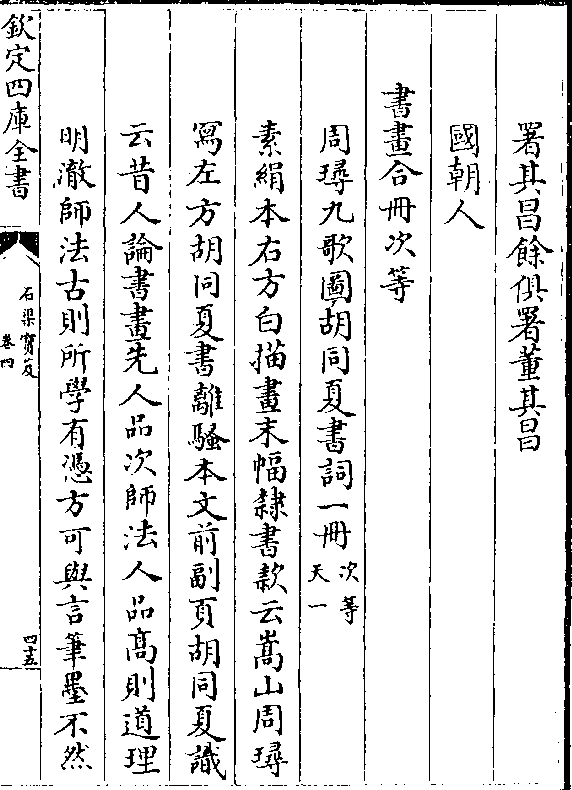 署其昌餘俱署董其昌
國朝人
書畫合冊次等
周璕九歌圖胡同夏書詞一冊次等
天一
素絹本右方白描畫末幅隸書款云嵩山周璕
寫左方胡同夏書離騷本文前副頁胡同夏識
云昔人論書畫先人品次師法人品髙則道理
明澈師法古則所學有憑方可與言筆墨不然
欽定四庫全書
石渠寳笈
卷四
四十五